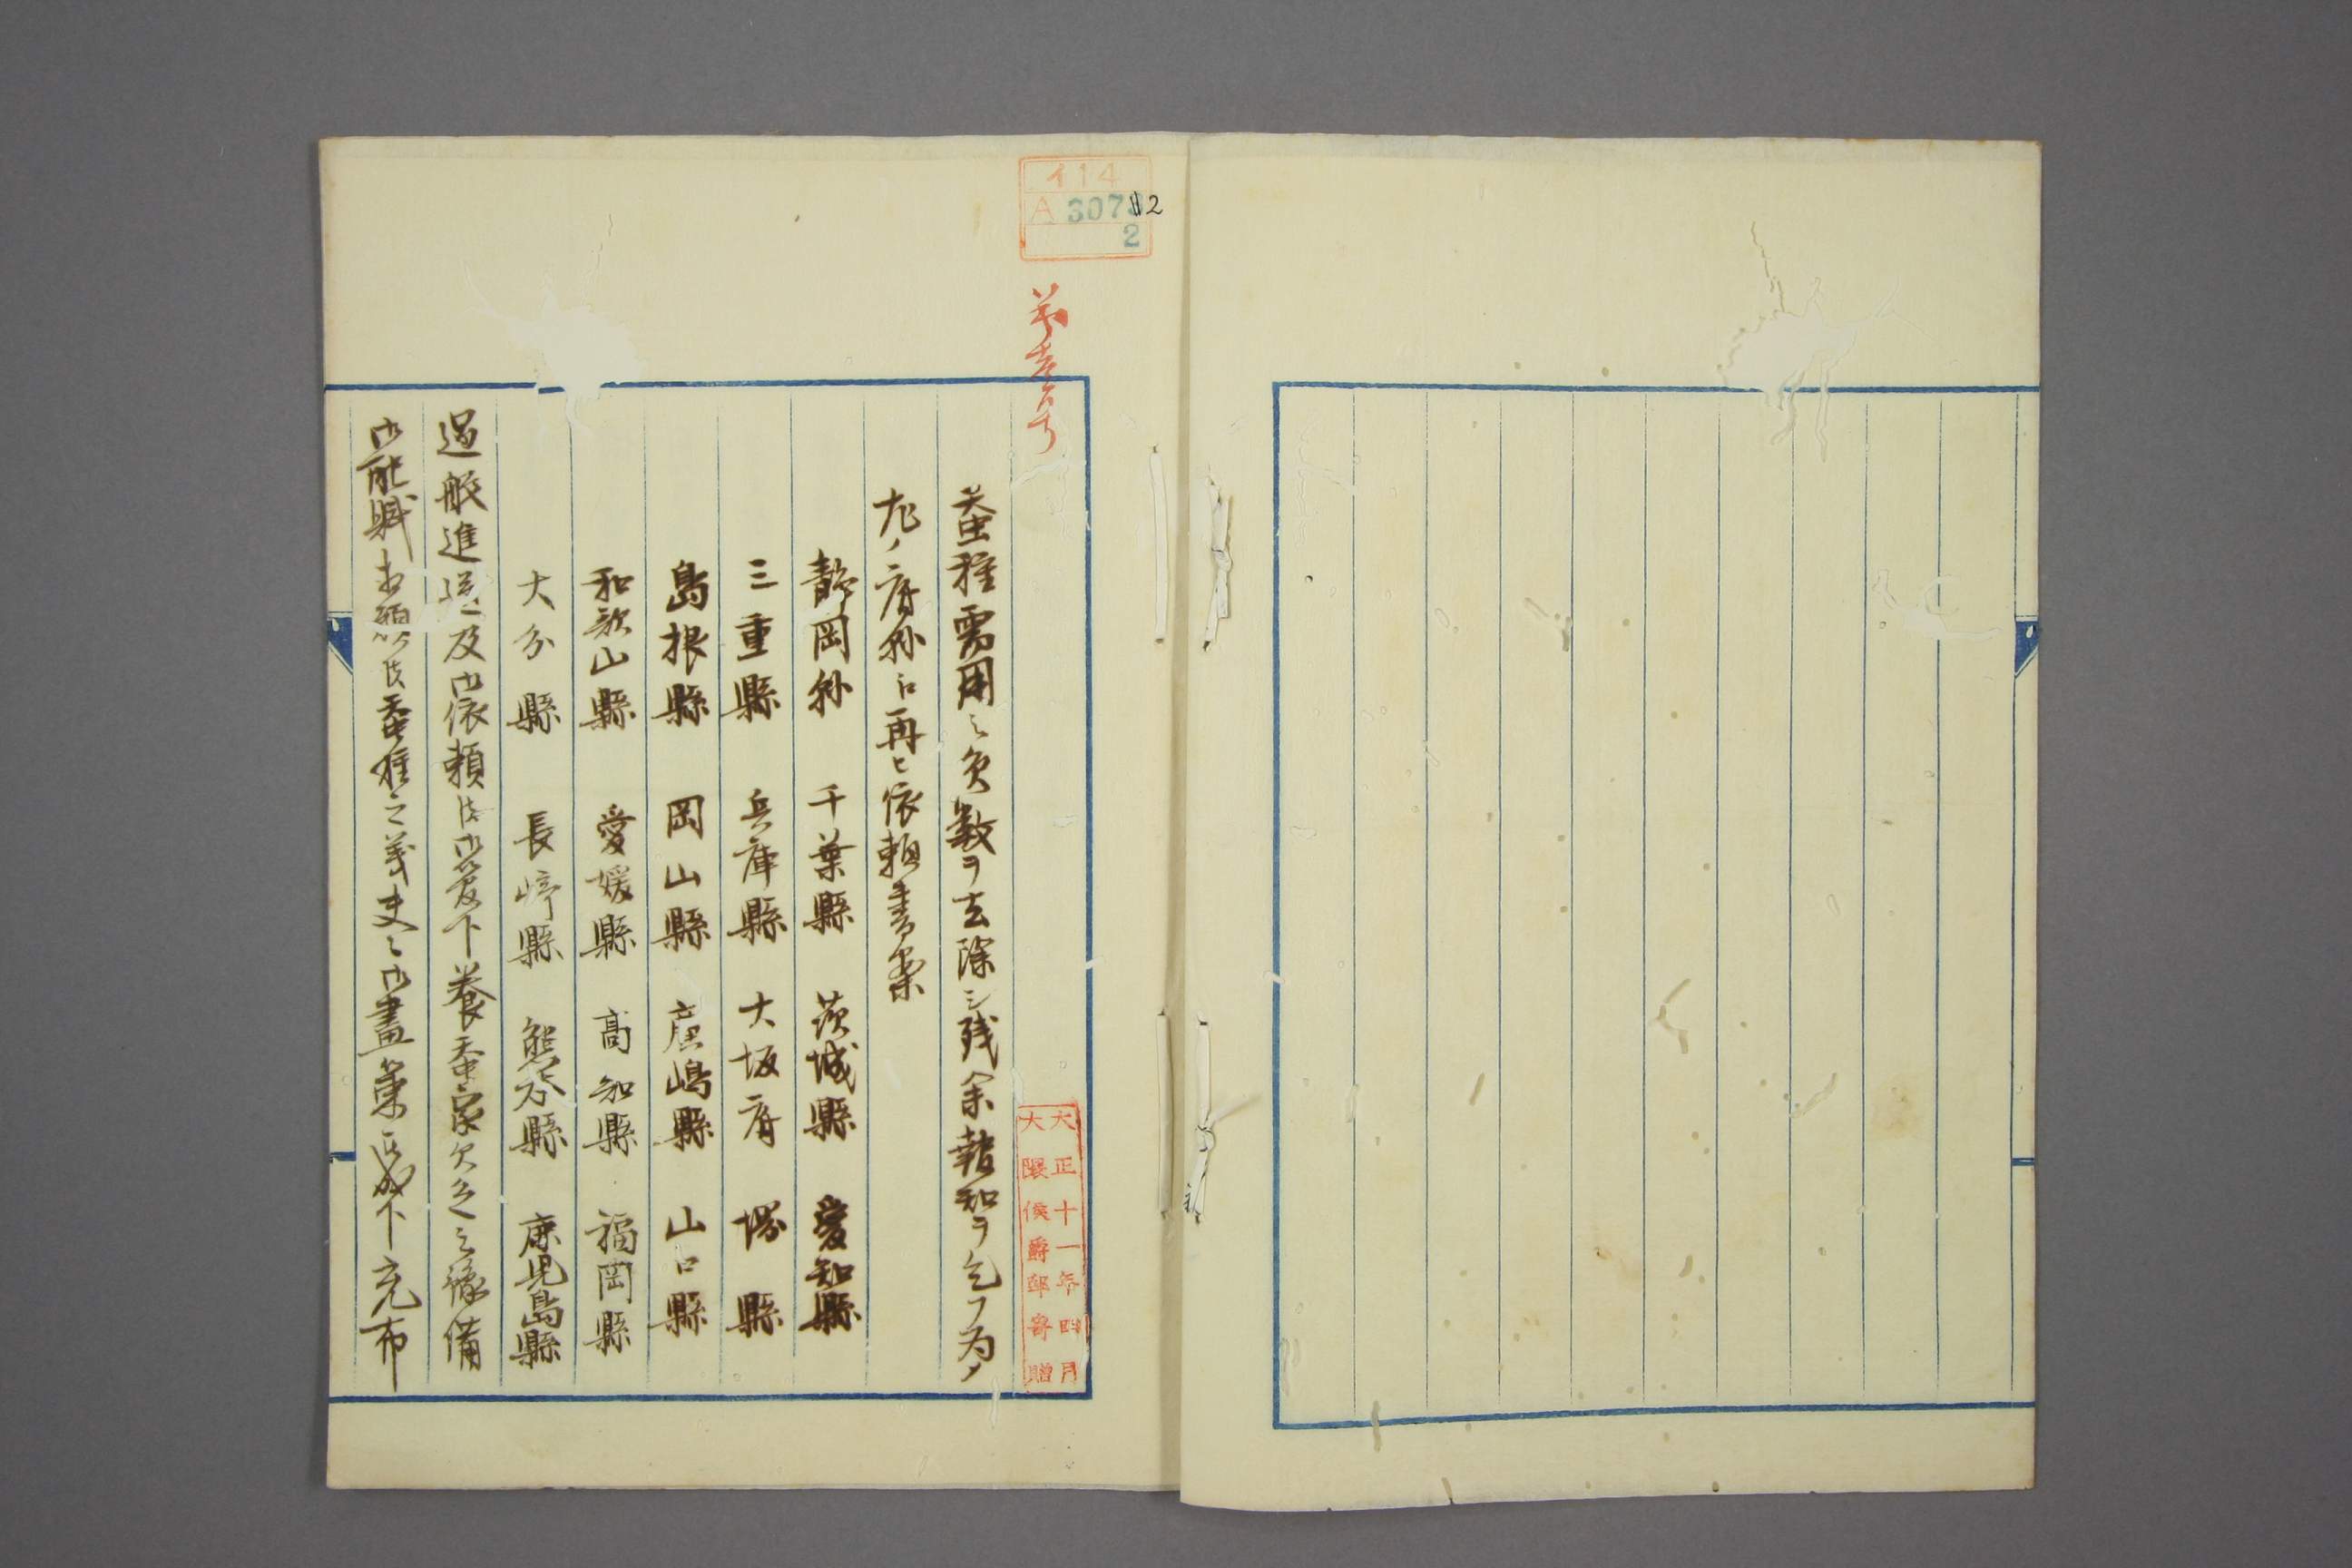 イ14
A 3073 112
2
第壱号
大正十一年四月
大隈侯爵郎寄贈
蚕種需用之員数ヲ去除シ残余報知ヲ乞フ為ノ
左ノ府県江再ヒ依頼書案
静岡県 千葉縣 茨城縣 愛知縣
三重縣 兵庫縣 大坂府 堺縣
島根縣 岡山縣 廣嶋縣 山口縣
和歌山縣 愛媛縣 高知縣 福岡縣
大分縣 長崎縣 熊谷縣 鹿児島縣
過般進達及御依頼候 養蚕家欠乏之豫備
御配賦相願候蚕種之義夫々御盡策 充布